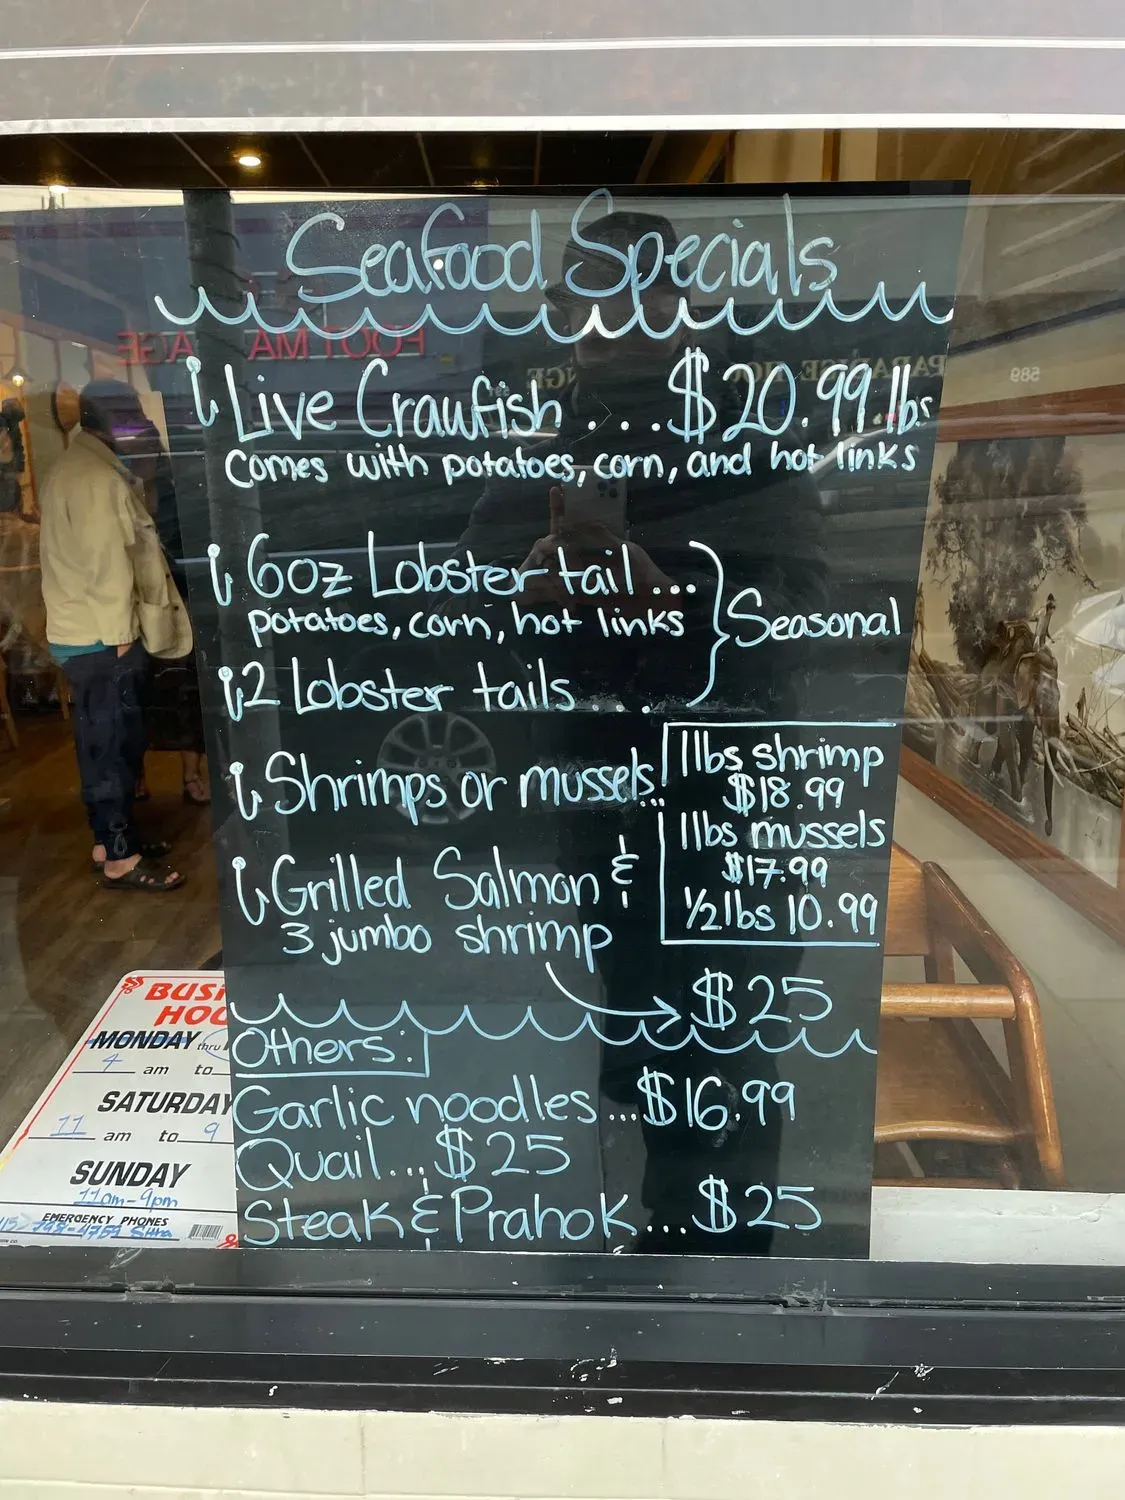 Seafood Specials
Live Crawfish ... $20.99 lbs
Comes with potatoes, corn, and hot links
6oz Lobster tail ...
potatoes, corn, hot links
Seasonal
2 Lobster tails ...
Shrimps or mussels...
1 lbs shrimp
$18.99
1 lbs mussels
$17.99
1/2 lbs 10.99
Grilled Salmon &
3 jumbo shrimp
$25
Others:
Garlic noodles ... $16.99
Quail ... $25
Steak & Prahok ... $25
MONDAY thru
4 am to
SATURDAY
11 am to 9
SUNDAY
11am-9pm
EMERGENCY PHONES
FOOT MA AGE
589